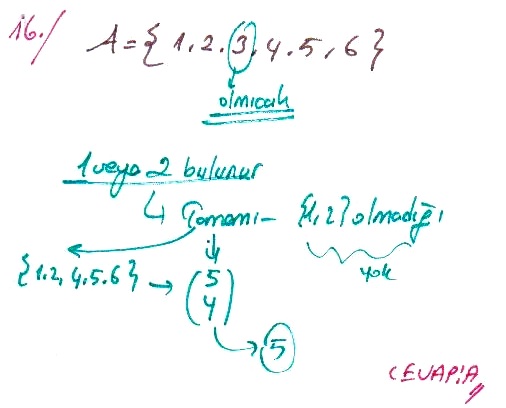 16./ A = {1,2,3,4,5,6}
olmıcak
1 veya 2 bulunur
↳ Tamamı - {1,2} olmadığı
yok
{1,2,4,5,6} → (5 4)
→ 5
CEVAP: A